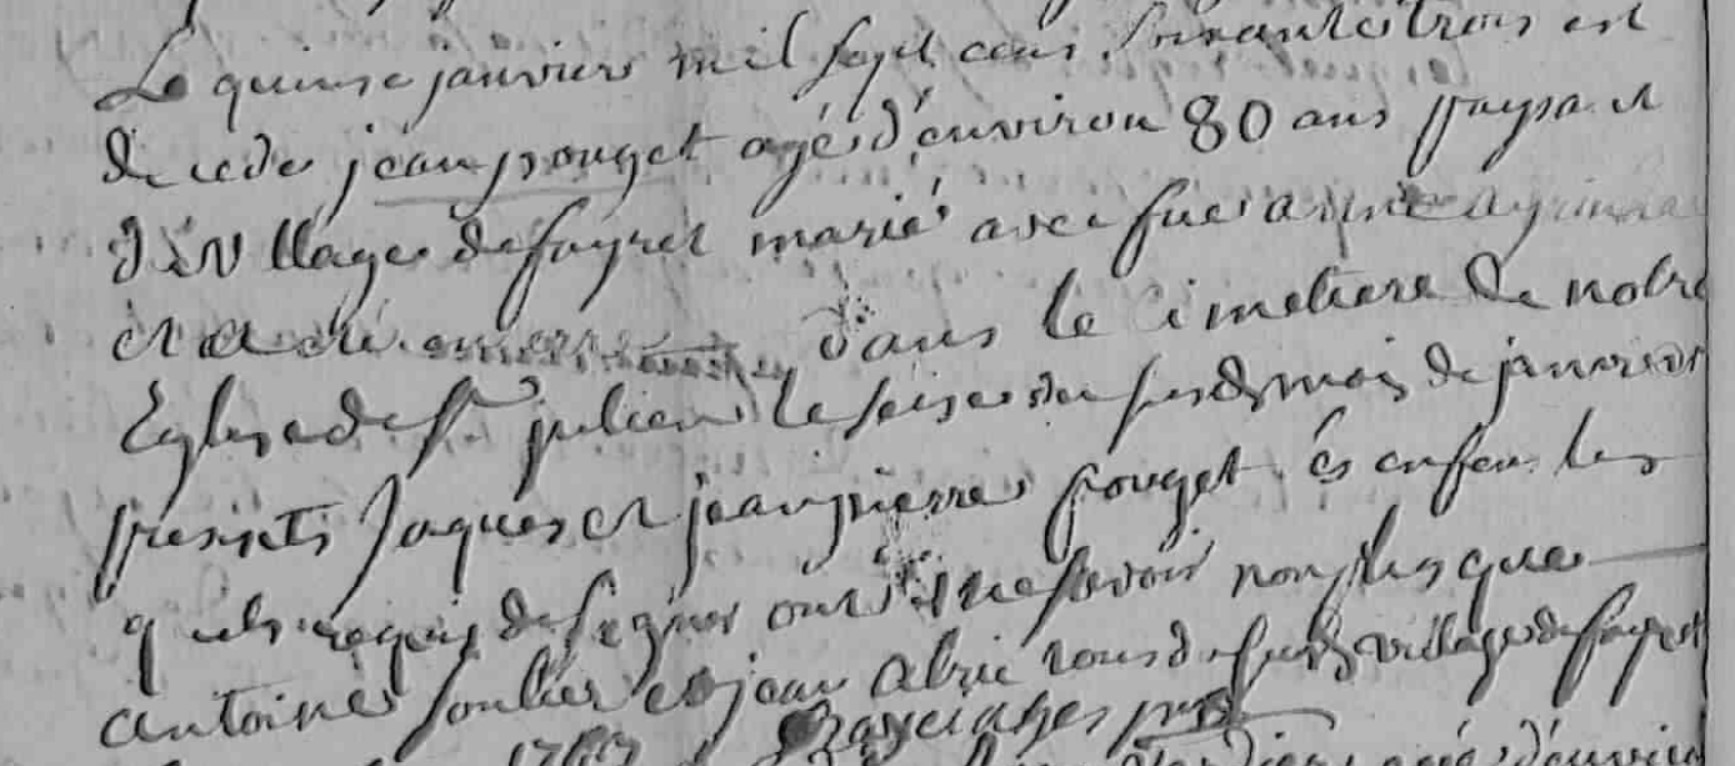 Le quinse janvier mil sept cens soixante trois est
decede jean pouget agé d'environ 80 ans paysant
du village de fayret marié avec fue anne
et a été dans le cimetiere de notre
Eglise de St julien le seise du susd mois de janvier
presents Jaques et jean pierre pouget ses enfens les
quels requis de signer ont dit ne savoir non plus que
antoine soulier et jean abrié tous du susd village de fayret
1763
d'environ